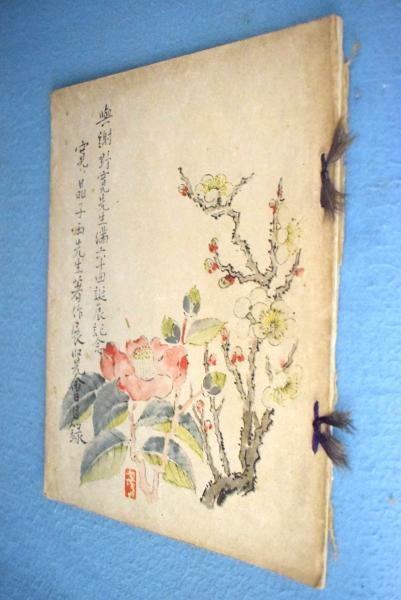 與謝野寛先生満六十回誕辰記念
寛、晶子両先生著作展覧會目録